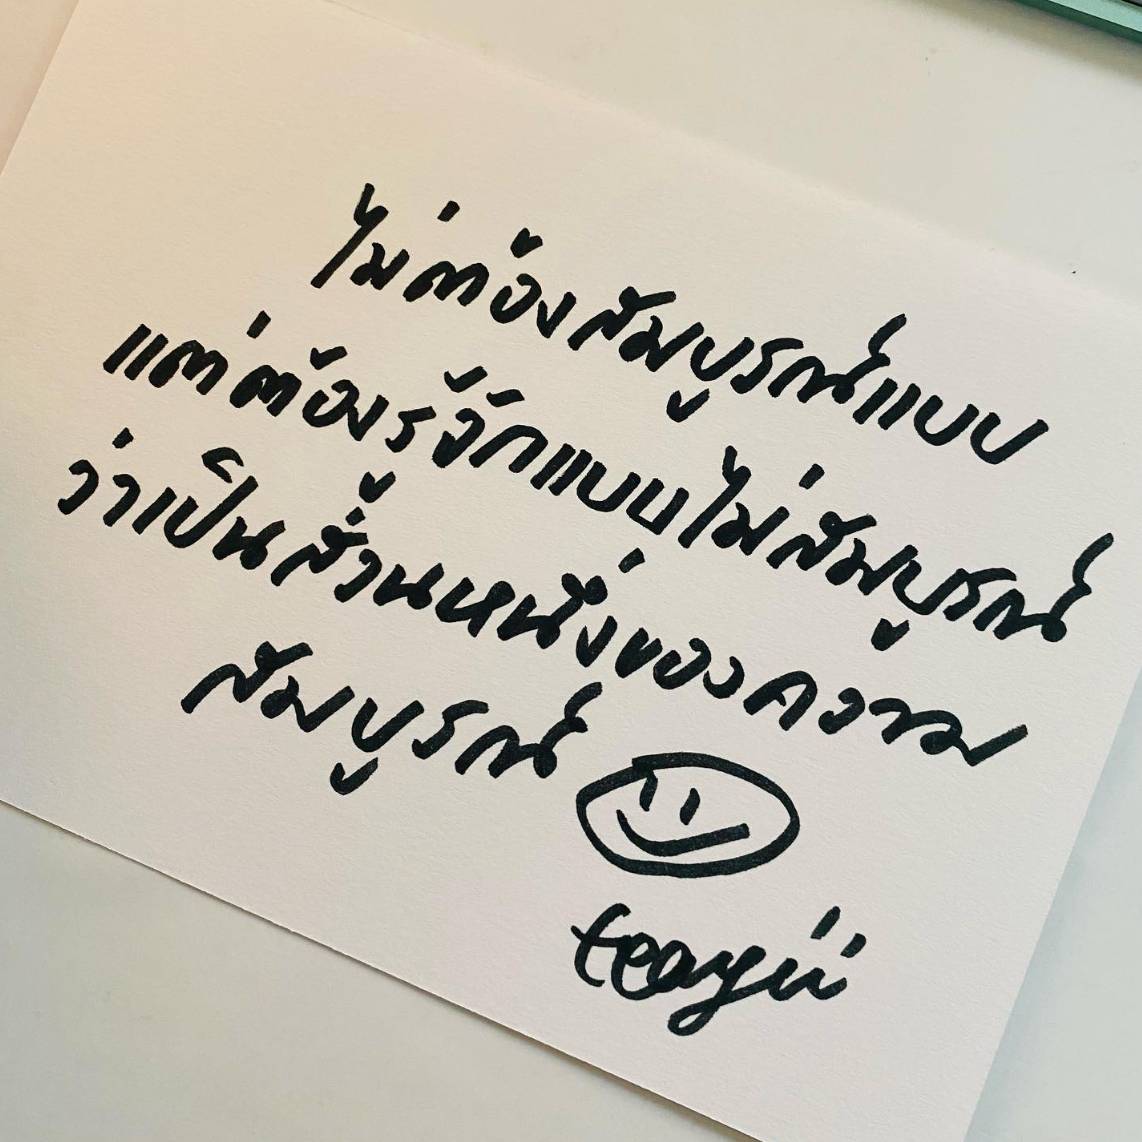 ไม่ต้องสัมบูรณ์แบบ
แต่ต้องรู้จักแบบไม่สัมบูรณ์
ว่าเป็นส่วนหนึ่งของความ
สัมบูรณ์